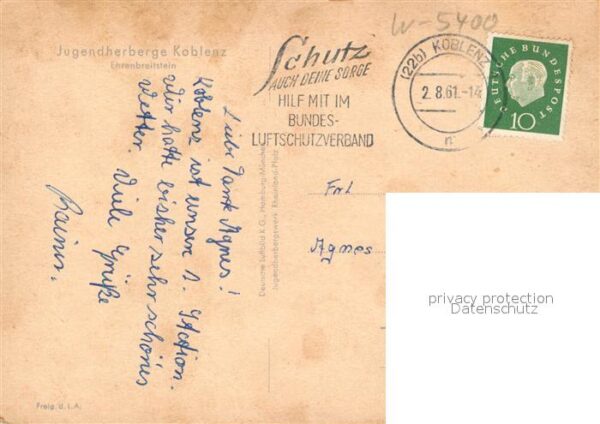 Jugendherberge Koblenz
Ehrenbreitstein
Liebe Tante Agnes!
Koblenz ist unsere 1. Station.
Wir hatte bisher sehr schönes
Wetter. Viele Grüße
Rainer.
Freig. d. L.A.
Deutsche Luftbild K.G., Hamburg-München
Jugendherbergswerk Rheinland-Pfalz
W-5400
Schutz
AUCH DEINE SORGE
HILF MIT IM
BUNDES-
LUFTSCHUTZVERBAND
(22b) KOBLENZ
2.8.61.-14
n
DEUTSCHE BUNDESPOST
10
Frl
Agnes
privacy protection
Datenschutz